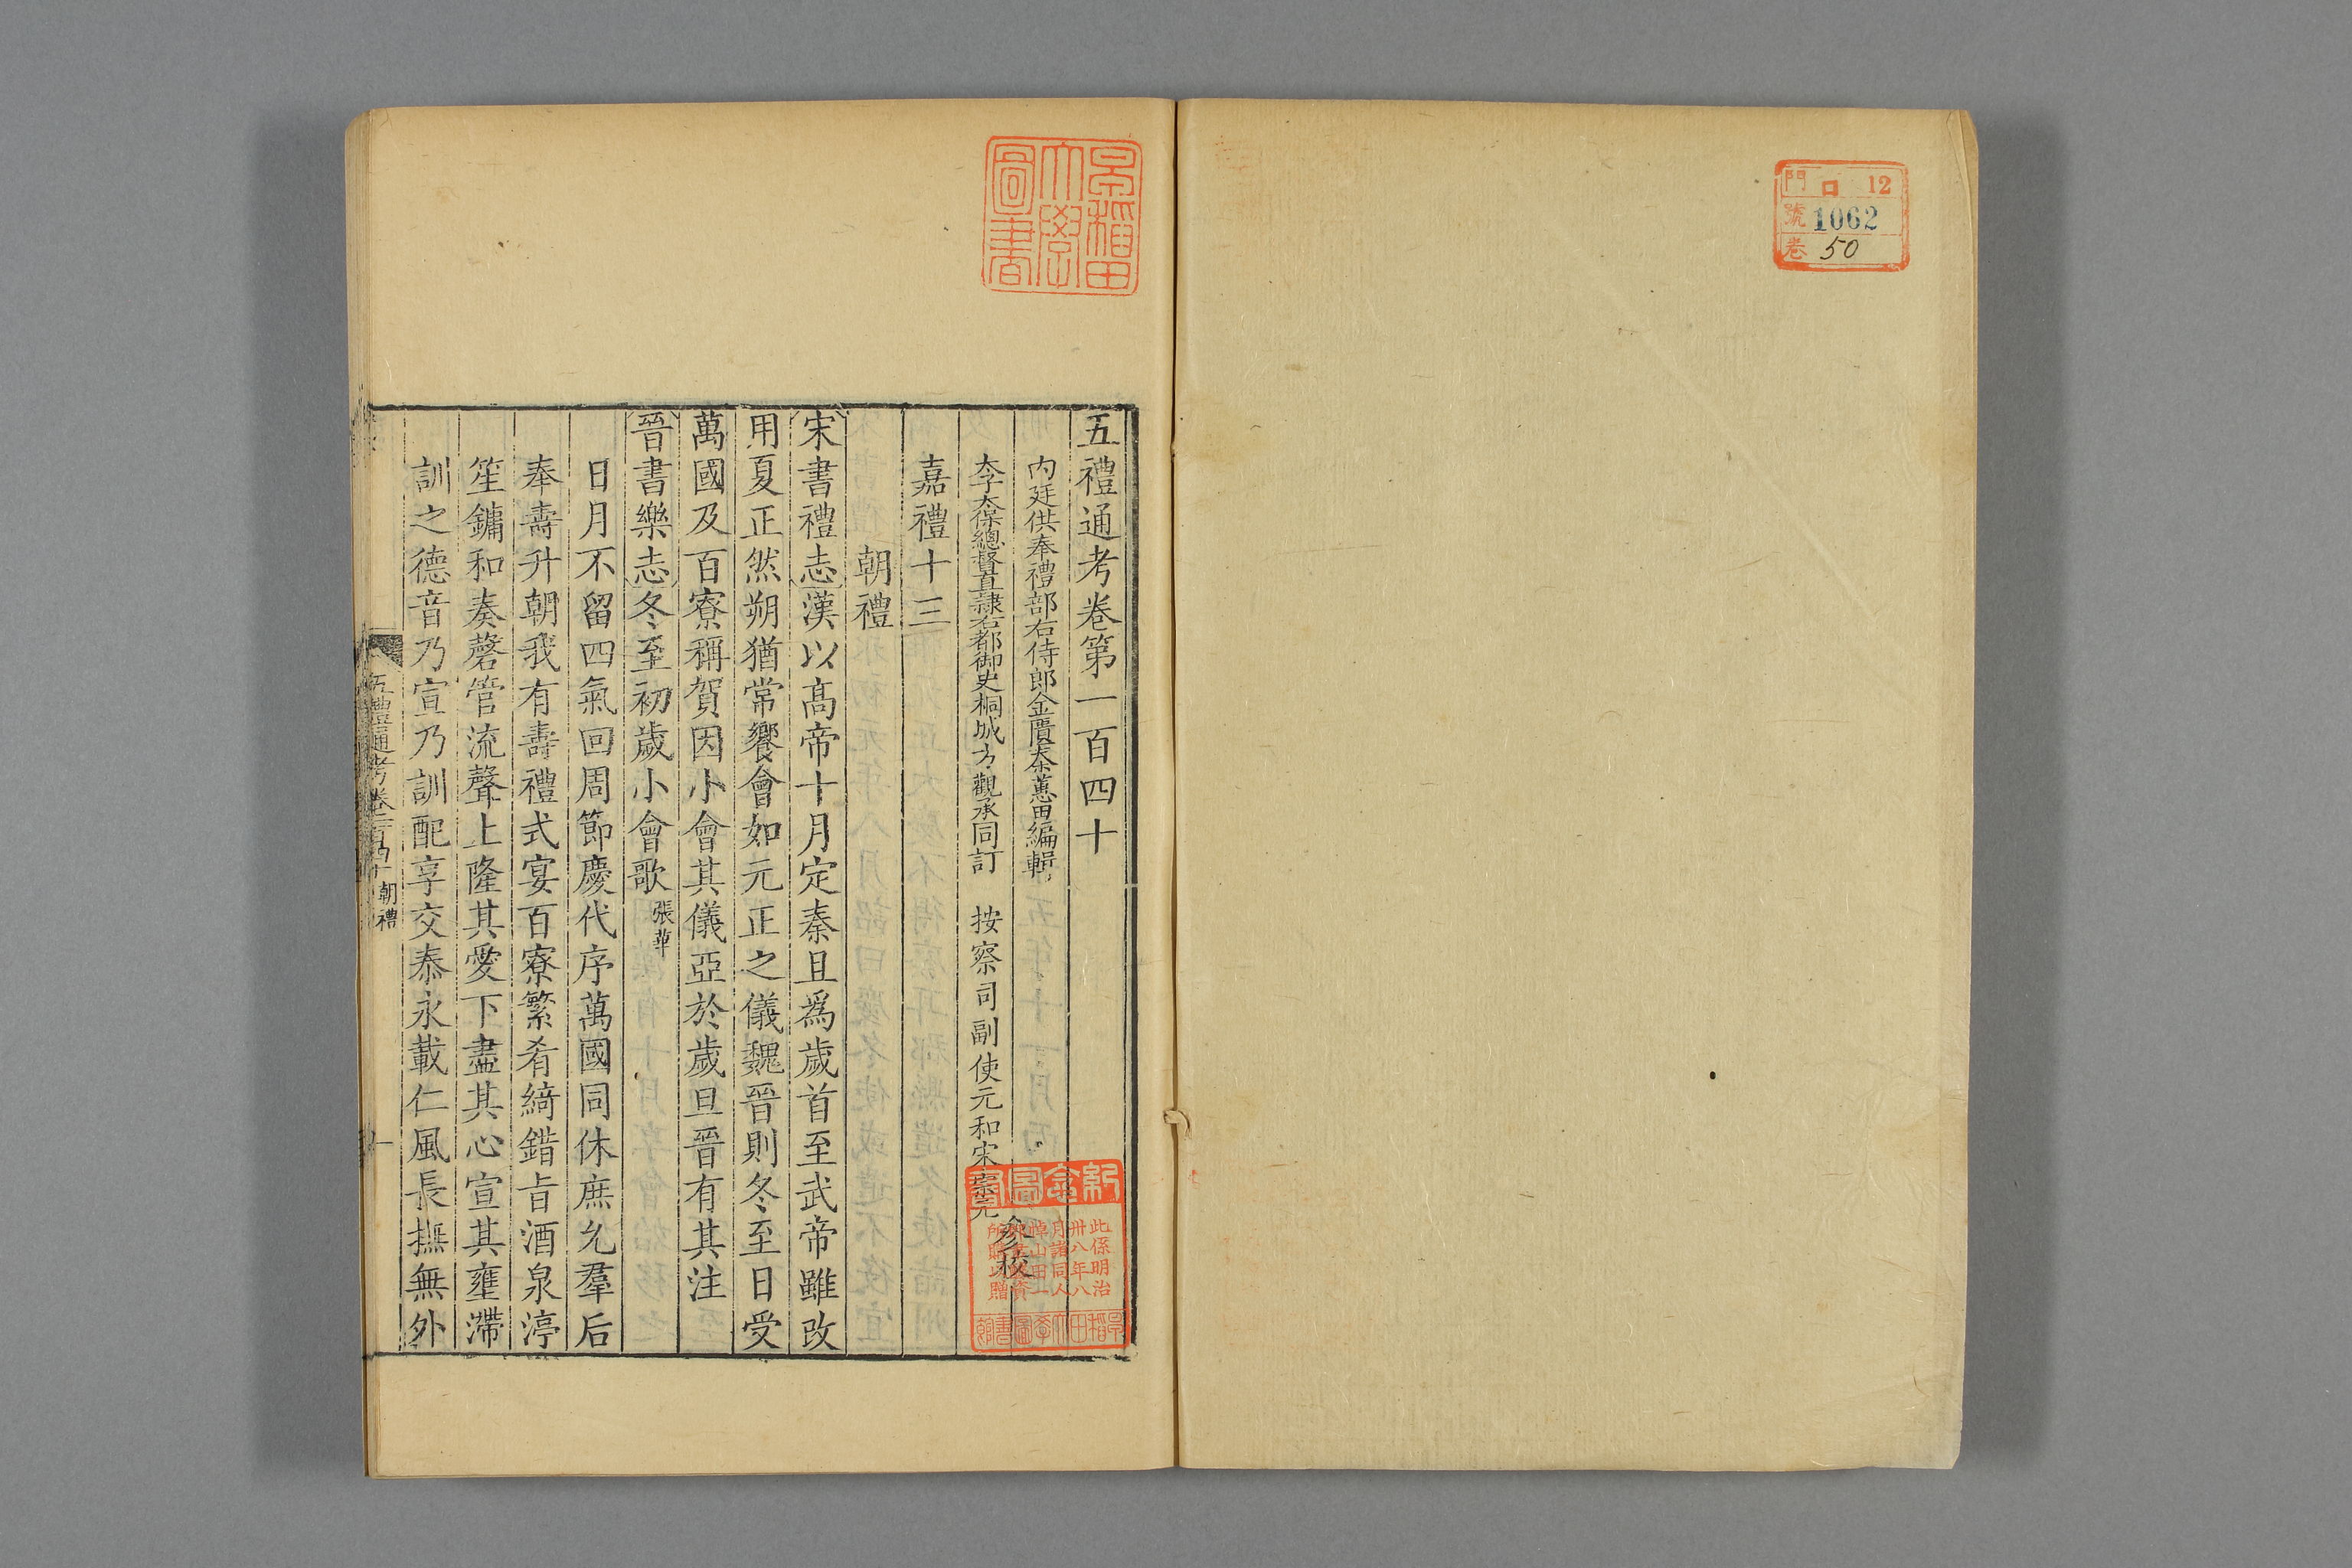 門 口 12
號 1062
卷 50
早稻田大學圖書
五禮通考卷第一百四十
內廷供奉禮部右侍郎金匱秦蕙田編輯
太子太保總督直隸右都御史桐城方觀承同訂 按察司副使元和宋宗元參校
嘉禮十三
朝禮
宋書禮志漢以高帝十月定秦且爲歲首至武帝雖改
用夏正然朔猶常饗會如元正之儀魏晉則冬至日受
萬國及百寮稱賀因小會其儀亞於歲旦晉有其注
晉書樂志冬至初歲小會歌張華
日月不留四氣回周節慶代序萬國同休庶允羣后
奉壽升朝我有壽禮式宴百寮繁肴綺錯旨酒泉渟
笙鏞和奏磬管流聲上隆其愛下盡其心宣其壅滯
訓之德音乃宣乃訓配享交泰永載仁風長撫無外
五禮通考卷一百四十 朝禮 一
此係明治
卅八年八
月諸同人
早稻田大學圖書館